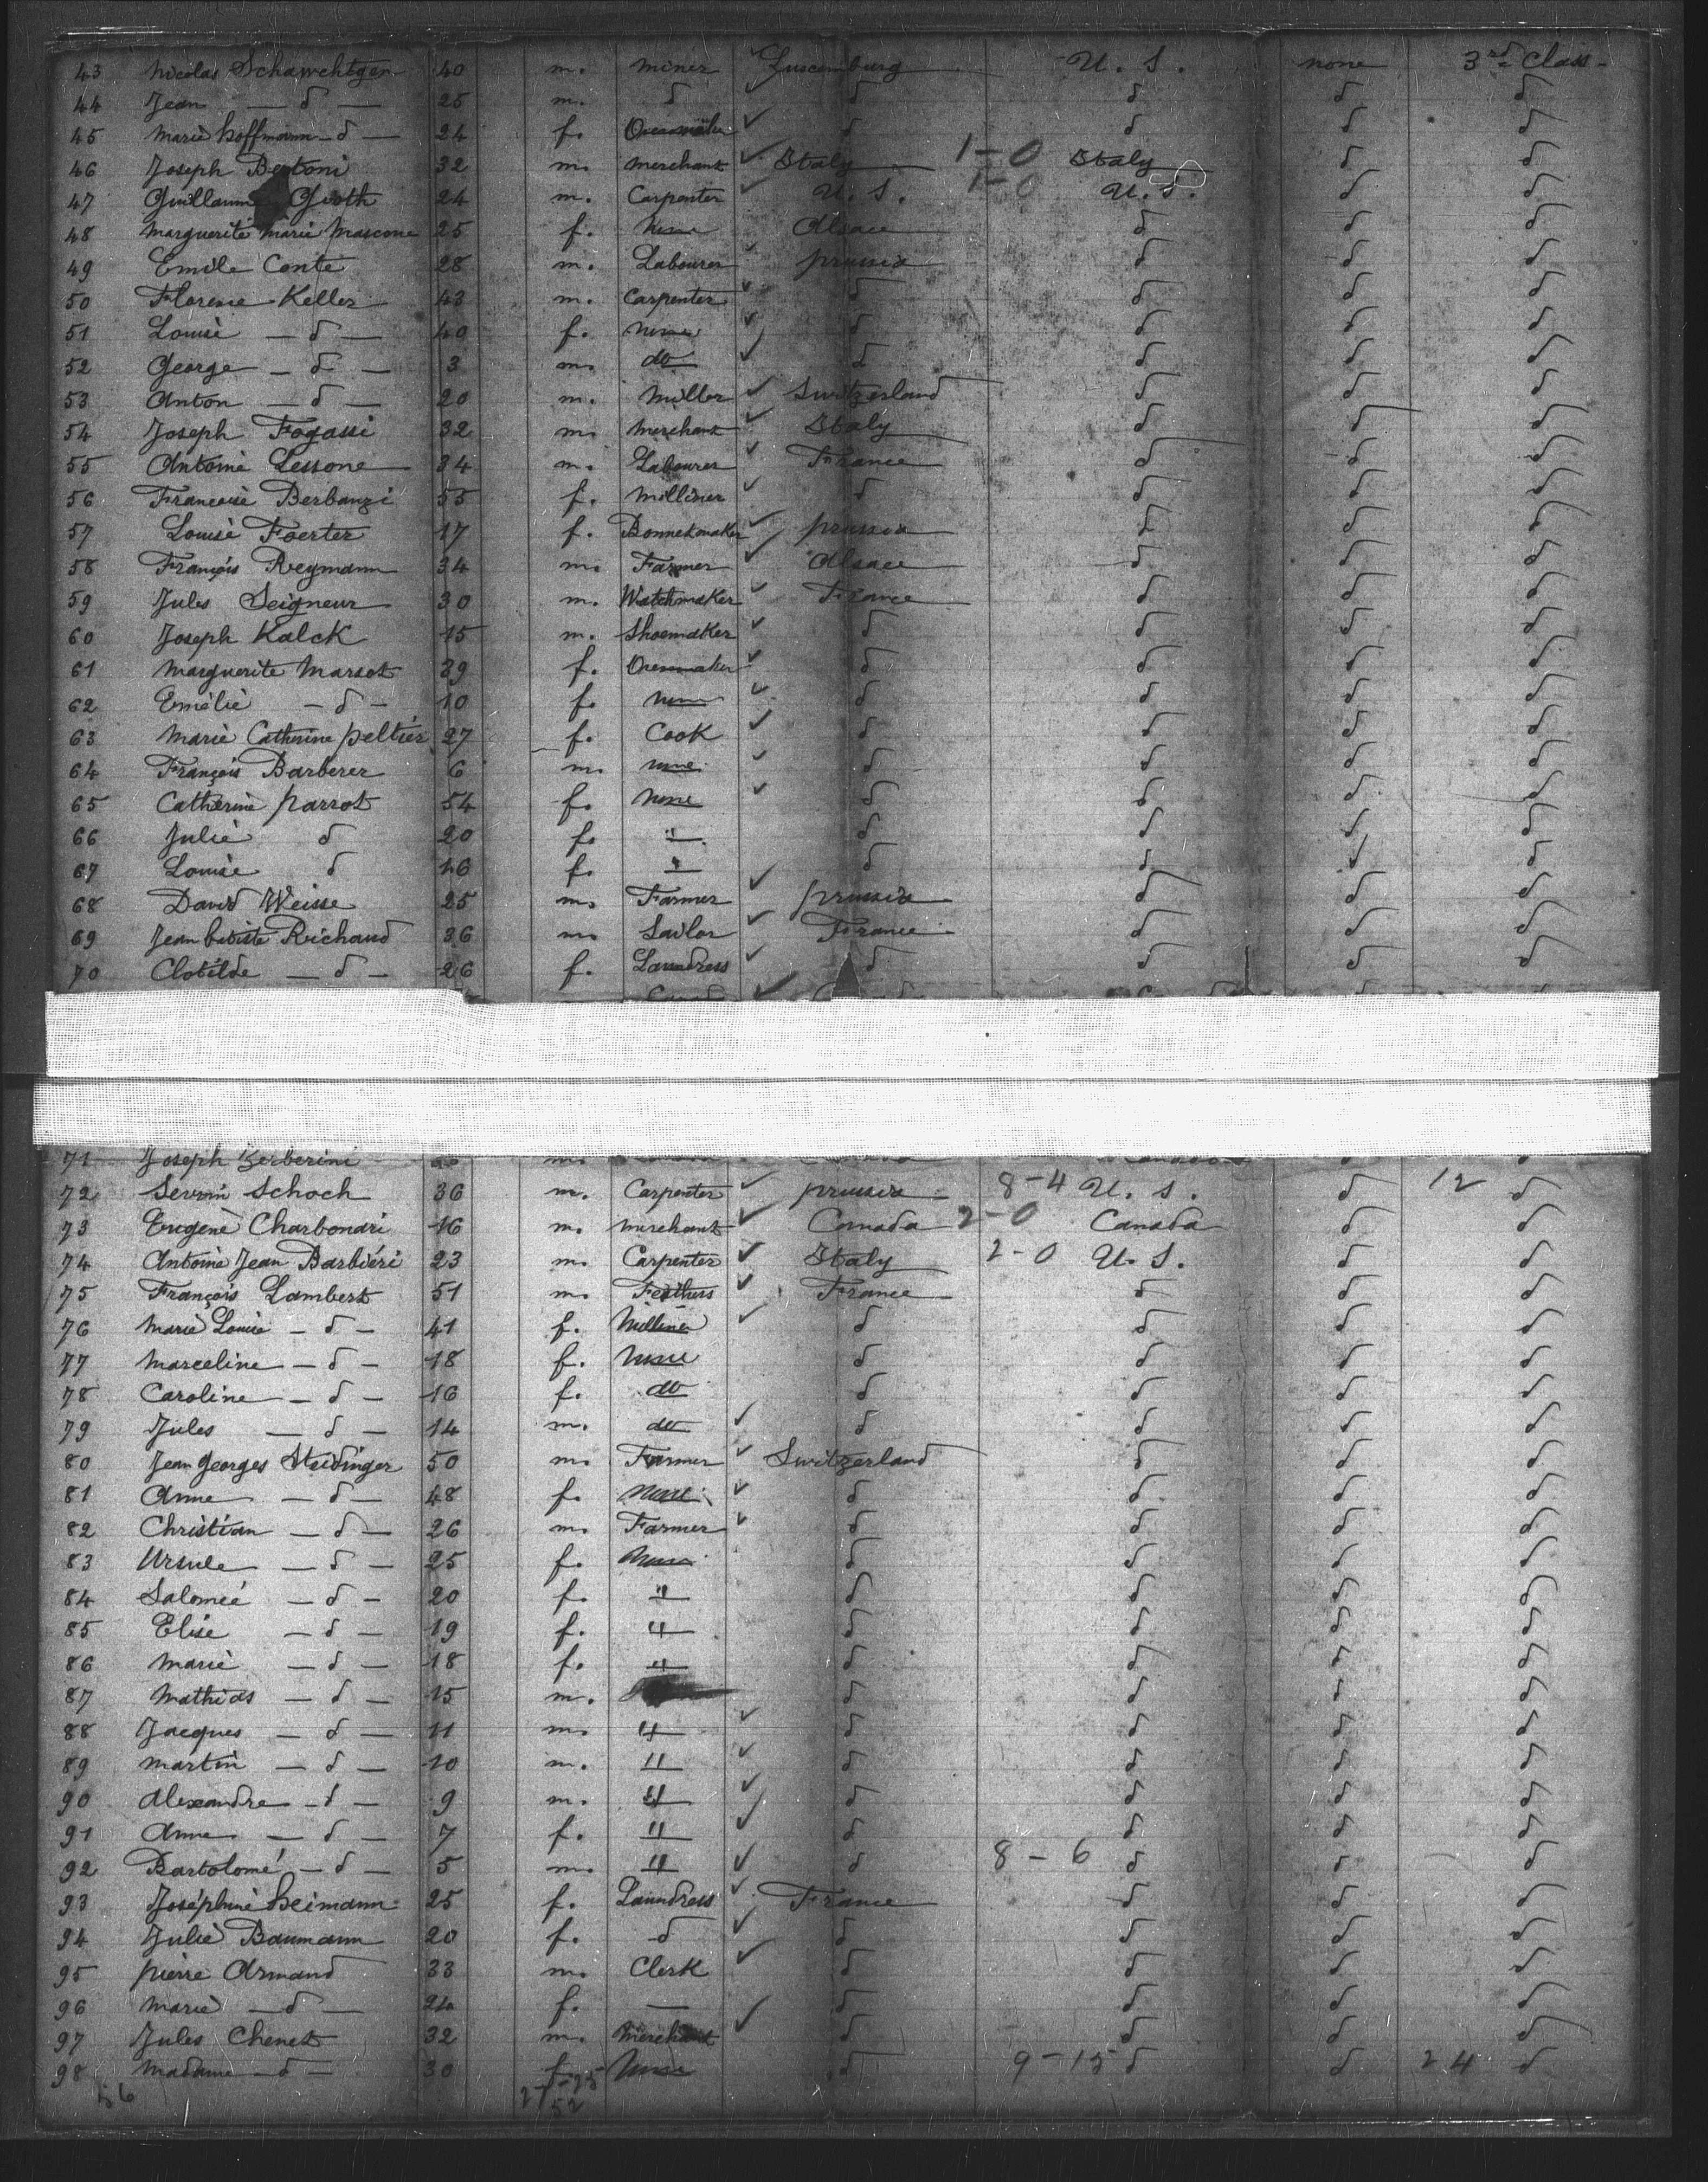 43 Nicolas Schawehtgen 40 m. miner ✓ Luxemburg U. S. none 3rd Class
44 Jean — d — 25 m. d ✓ d d d d
45 Marie hoffmann — d — 24 f. ✓ d d d d
46 Joseph Bertoni 32 m. merchant ✓ Italy 1-0 Italy d d
47 Guillaume 24 m. Carpenter ✓ U. S. 1-0 U. S. d d
48 Marguerite Marie Mascone 25 f. none Alsace d d d
49 Emile Conte 28 m. Labourer ✓ prussia d d d
50 Florence Keller 43 m. Carpenter ✓ d d d d
51 Louise — d — 40 f. none ✓ d d d d
52 George — d — 3 m. do ✓ d d d d
53 Anton — d — 20 m. Miller ✓ Switzerland d d d
54 Joseph Fogassi 32 m. Merchant ✓ Italy d d d
55 Antoine Lessone 34 m. Labourer ✓ France d d d
56 Francoise Berbanzi 55 f. Milliner ✓ d d d d
57 Louise Foerter 17 f. Bonnetmaker ✓ prussia d d d
58 François Reymann 34 m. Farmer ✓ Alsace d d d
59 Jules Seigneur 30 m. Watchmaker ✓ France d d d
60 Joseph Kalck 15 m. Shoemaker ✓ d d d d
61 Marguerite Marsot 39 f. Dressmaker ✓ d d d d
62 Emélie — d — 10 f. none ✓ d d d d
63 Marie Catherine peltier 27 f. Cook ✓ d d d d
64 François Barberer 6 m. none ✓ d d d d
65 Catherine parrot 54 f. none ✓ d d d d
66 Julie d 20 f. " d d d d
67 Louise d 16 f. " d d d d
68 David Weisse 25 m. Farmer ✓ prussia d d d
69 Jean batiste Richaud 36 m. Sailor ✓ France d d d
70 Clotilde — d — 26 f. Laundress ✓ d d d d
71 Joseph Berberini m.
72 Sevrin Schoch 36 m. Carpenter ✓ prussia 8-4 U. S. d 12 d
73 Eugène Charbonari 16 m. merchant ✓ Canada 2-0 Canada d d
74 Antoine Jean Barbiéri 23 m. Carpenter ✓ Italy 2-0 U. S. d d
75 François Lambert 51 m. Feathers ✓ France d d d
76 Marie Louise — d — 41 f. Milliner ✓ d d d d
77 Marceline — d — 18 f. none d d d d
78 Caroline — d — 16 f. do d d d d
79 Jules — d — 14 m. do ✓ d d d d
80 Jean Georges Studinger 50 m. Farmer ✓ Switzerland d d d
81 Anne — d — 48 f. none ✓ d d d d
82 Christian — d — 26 m. Farmer ✓ d d d d
83 Ursule — d — 25 f. none d d d d
84 Salomée — d — 20 f. " d d d d
85 Elise — d — 19 f. " d d d d
86 Marie — d — 18 f. " d d d d
87 Mathias — d — 15 m. d d d d
88 Jacques — d — 11 m. " ✓ d d d d
89 Martin — d — 10 m. " ✓ d d d d
90 Alexandre — d — 9 m. " ✓ d d d d
91 Anne — d — 7 f. " ✓ d d d d
92 Bartolomé — d — 5 m. " ✓ d 8-6 d d d
93 Joséphine heimann 25 f. Laundress ✓ France d d d
94 Julie Baumann 20 f. d ✓ d d d d
95 pierre Armand 33 m. Clerk ✓ d d d d
96 Marie — d — 24 f. — d d d d
97 Jules Chenet 32 m. Merchant ✓ d d d d
98 Madame — d — 30 f. none d 9-15 d d 24 d
56 27-25
52